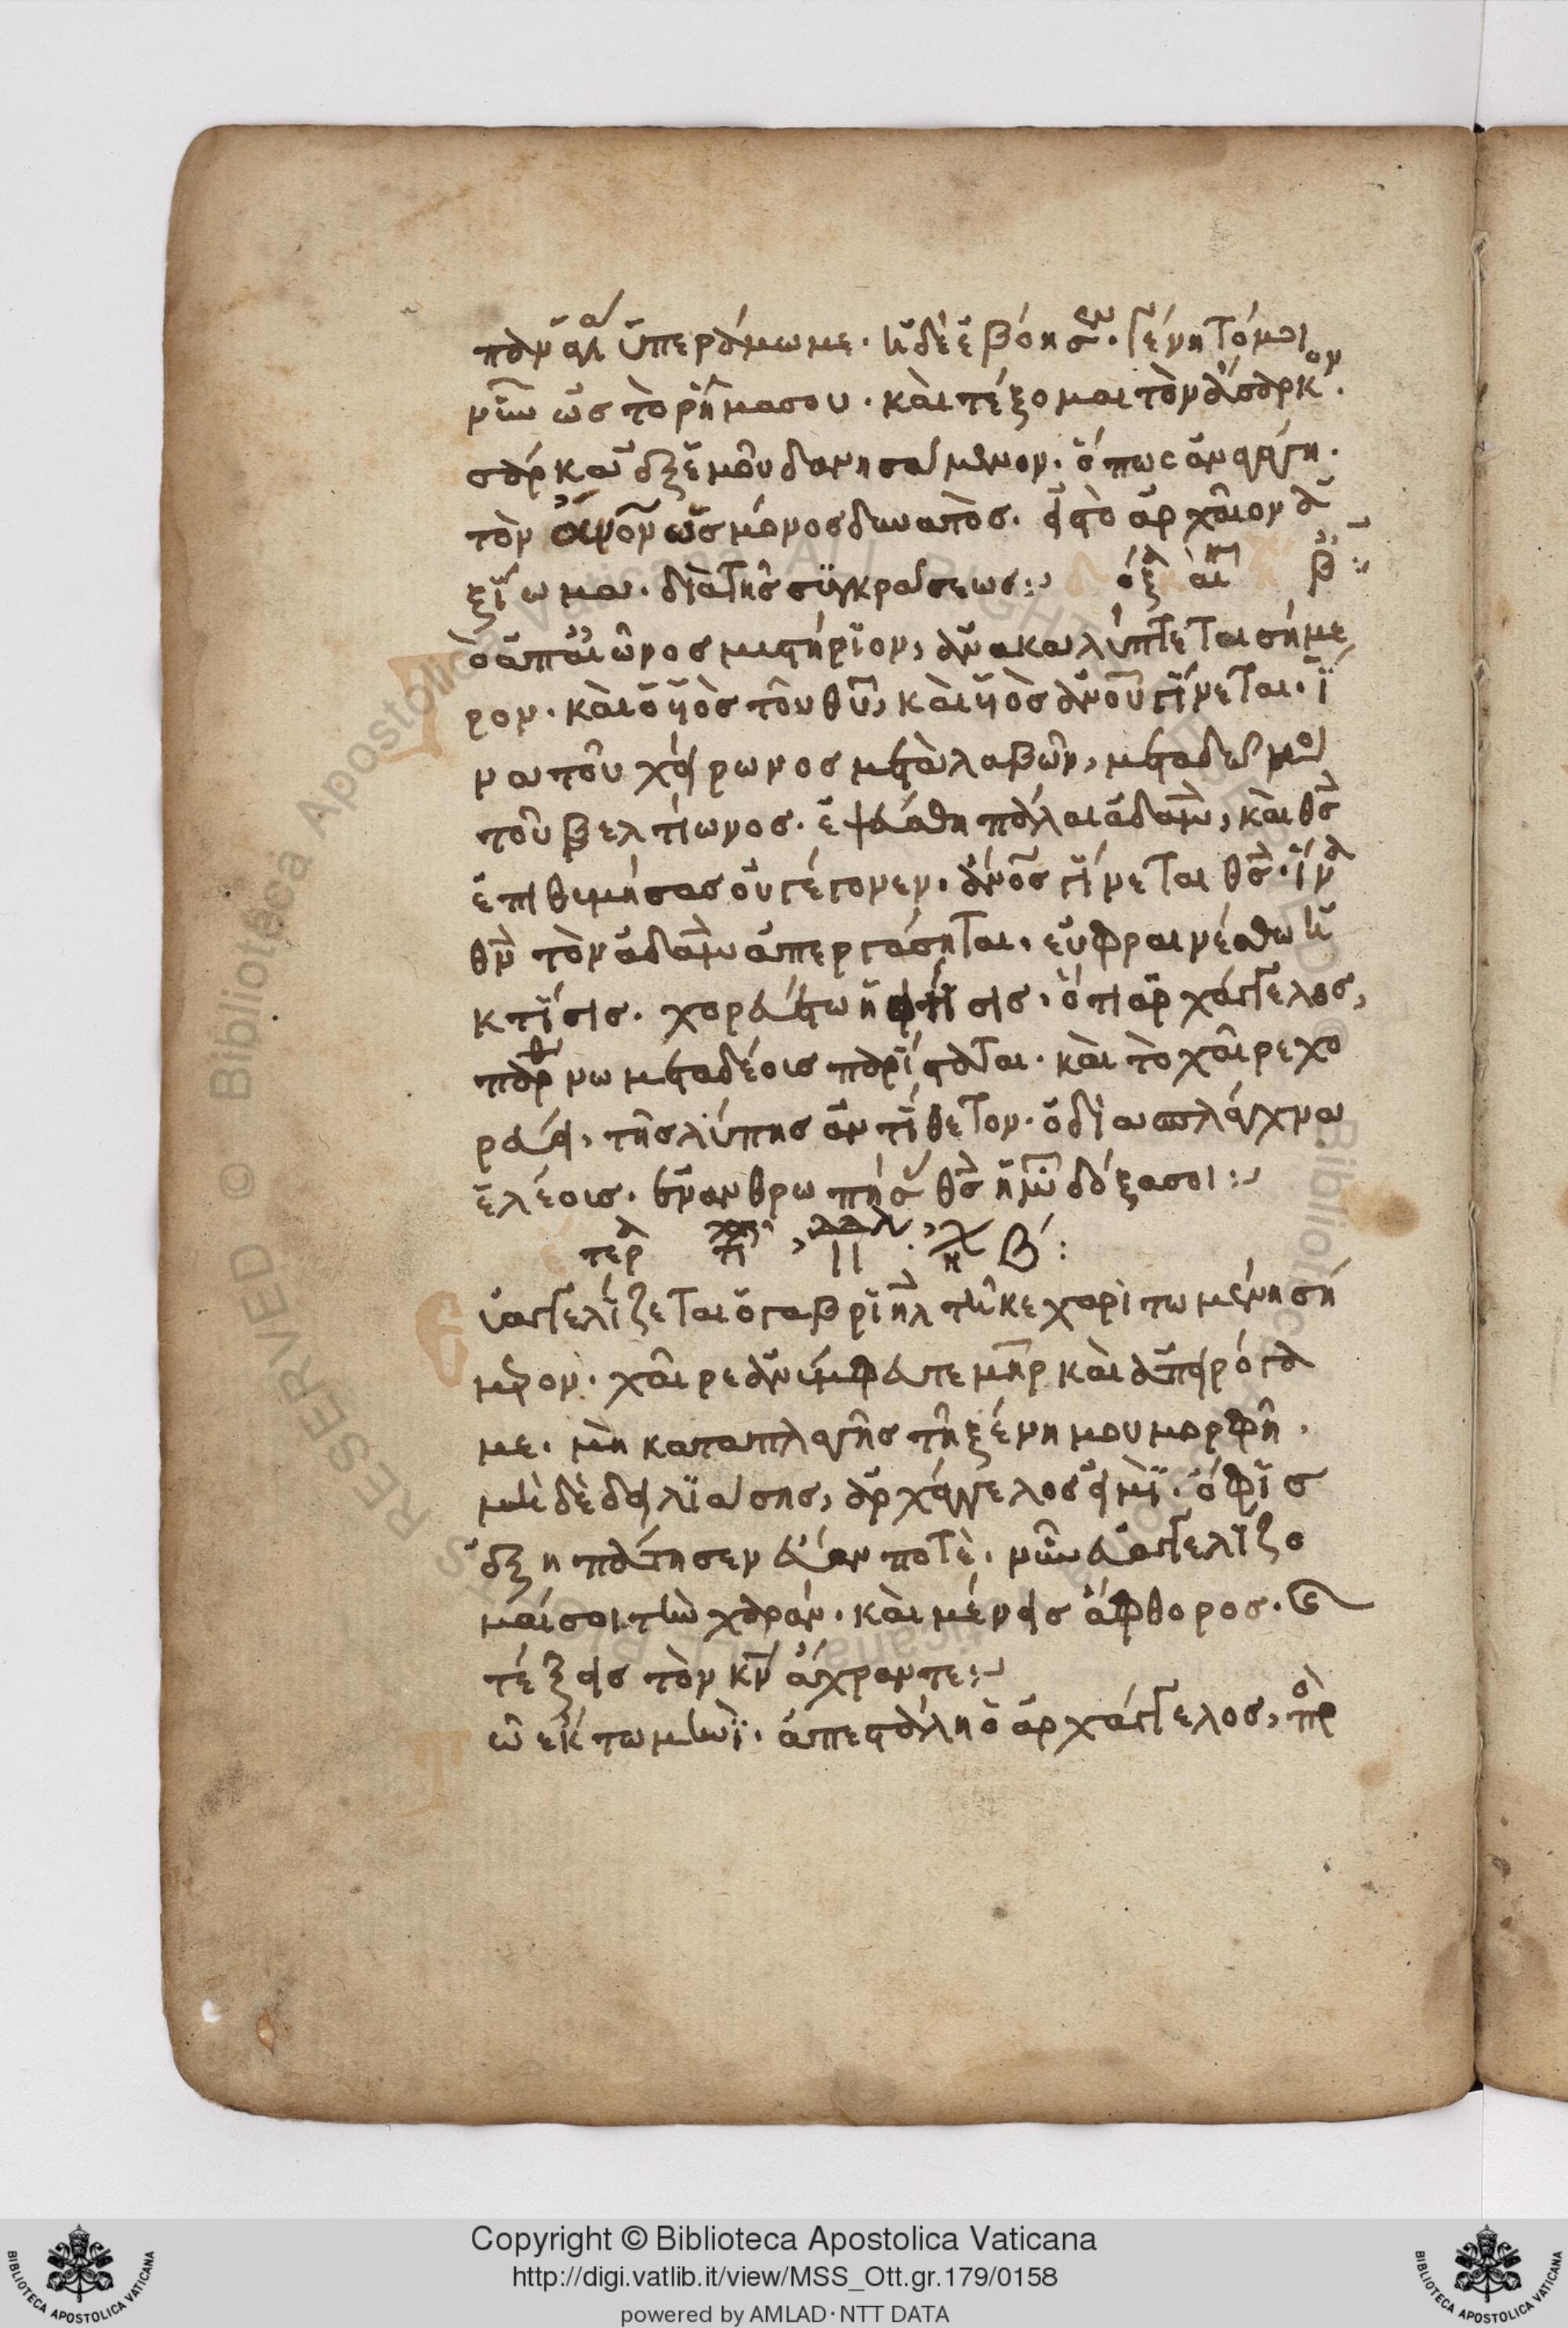 πάναγνε ὑπεράμωμε. ἡ δὲ ἐβόησεν. γένητό μοι
νῦν ὡς τὸ ρῆμα σου. καὶ τέξομαι τὸν ἄσαρκον.
σάρκα ἐξ ἐμοῦ δανησάμενον. ὅπως ἀναγάγη.
τὸν ἄνον ὡς μόνος δυνατὸς. εἰς τὸ ἀρχαῖον ἀ
ξίωμα. διὰ τῆς συγκράσεως:
ὸ ἀπαἰῶνος μυστήριον, ἀνακαλύπτεται σήμε
ρον. καὶ ὁ ὑιὸς τοῦ θυ, καὶ ὑιὸς ἀνου γίνεται. ἵ
να τοῦ χείρωνος μεταλαβὼν, μεταδῶ μοι
τοῦ βελτίωνος. ἐψεύσθη πάλαι ἀδὰμ, καὶ θς
ἐπιθυμήσας οὐ γέγονεν. ἄνος γίνεται θς. ἵνα
θν τὸν ἀδὰμ ἀπεργάσηται. εὐφραινέσθω ἡ
κτίσις. χορευέτω ἡ φύσις. ὅτι ἀρχάγγελος,
παρθένω μετα δέους παρίσταται. καὶ τὸ χαῖρε χο
ραύει, τῆς λύπης ἀντίθετον. ὁ δια σπλάγχνα
ἐλέους. ἐνανθρωπήσας θς ἡμῶν δόξα σοι:
ὐαγγελίζεται ὁ γαβριὴλ τῆ κεχαριτωμένη σή
μερον. χαῖρε ἀνύμφευτε μηρ καὶ ἀπειρόγα
με. μὴ καταπλαγῆς τῆ ξένη μου μορφῆ.
μηδὲ δειλιάσης, ἀρχάγγελος εἰμὶ. ὄφις
ἐξηπάτησεν εὔαν ποτὲ. νῦν εὐαγγελίζο
μαί σοι τὴν χαράν. καὶ μένεις ἄφθορος.
τέξεις τὸν κν ἄχραντε:
ῶ ἕκτω μηνὶ. ἀπεστάλη ὁ ἀρχάγγελος, πρ
Copyright © Biblioteca Apostolica Vaticana
http://digi.vatlib.it/view/MSS_Ott.gr.179/0158
powered by AMLAD·NTT DATA